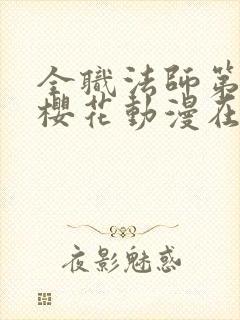 全職法師第
櫻花動漫在
夜影魅惑